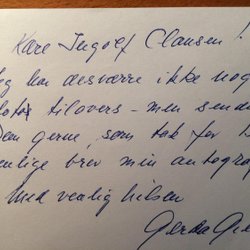 Kære Ingolf Clausen!
Jeg har desværre ikke nog
fotos tilovers - men sende
Dem gerne, som tak for
venlige brev min autogra
Med venlig hilsen
Gerda